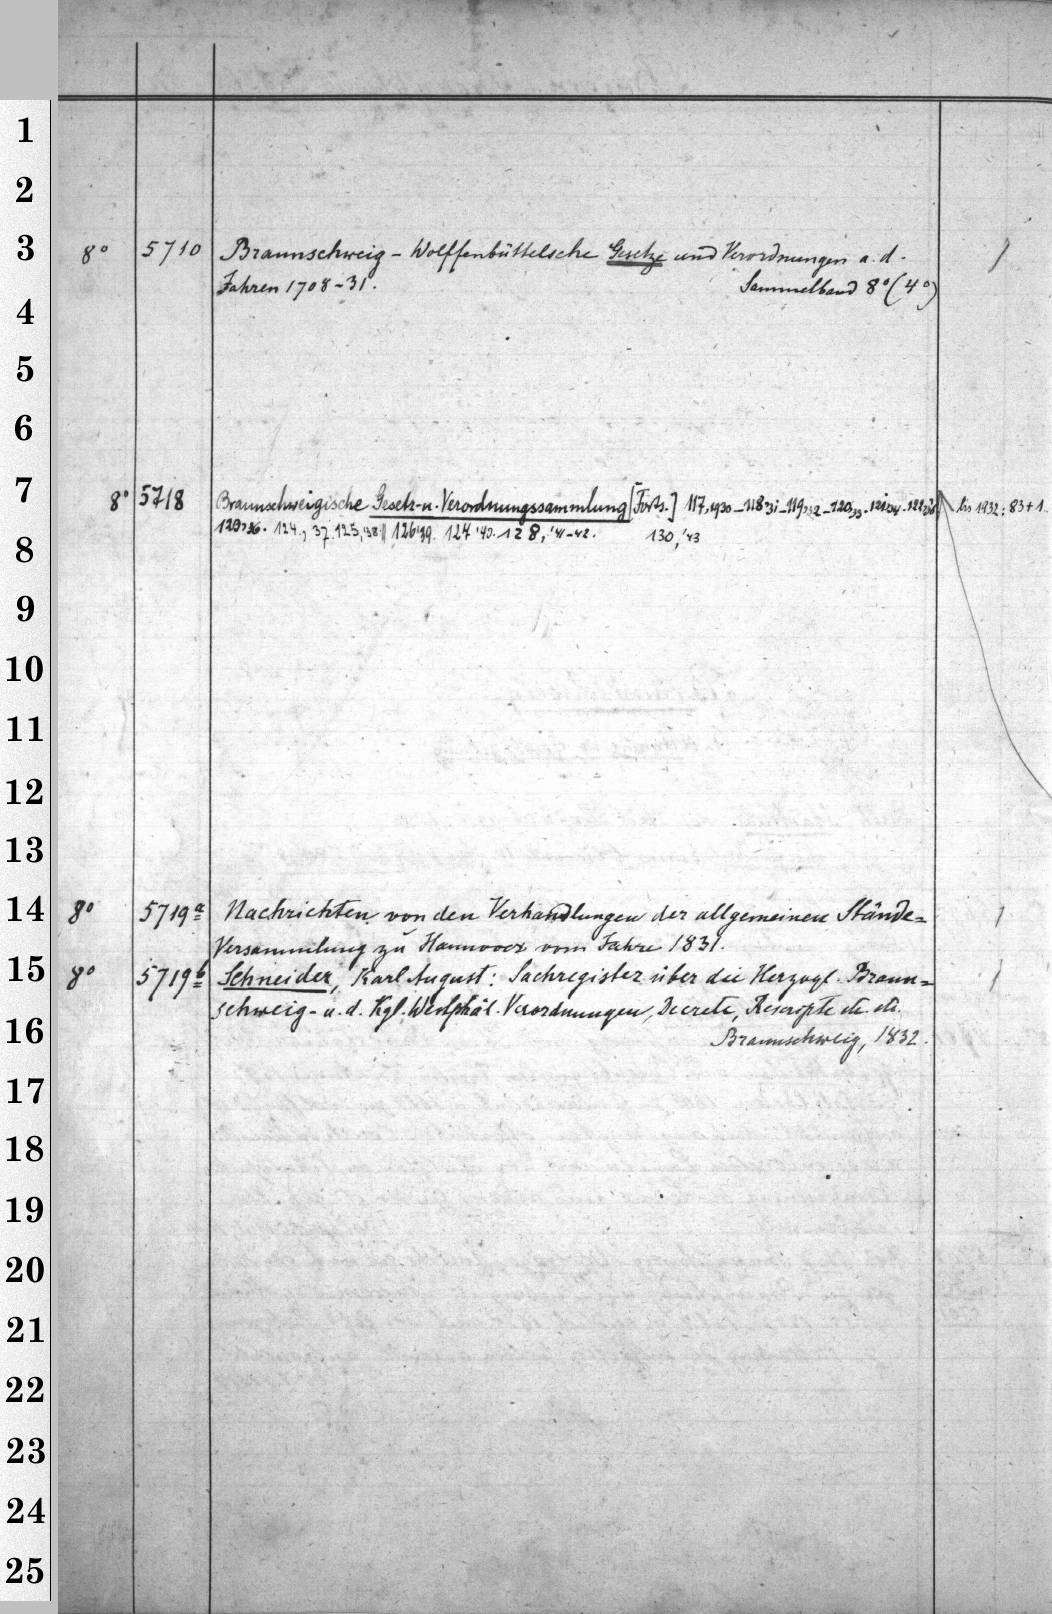 1
2
3
8° 5710 Braunschweig - Wolffenbüttelsche Gesetze und Verordnungen a. d. 1
Jahren 1708-31. Sammelband 8° (4°)
4
5
6
7
8° 5718 Braunschweigische Gesetz-u. Verordnungssammlung [Forts.] 117,1930-118,31-119,32-120,33. 121,34. bis 1932: 83+1
124, 37. 125, 38 126,'39. '40. 128, '41-42. 130, '43
8
9
10
11
12
13
14
8° 5719a Nachrichten von den Verhandlungen der allgemeinen Stände= 1
Versammlung zu Hannover vom Jahre 1831.
15
8° 5719b Schneider, Karl August: Sachregister über die Herzogl. Braun= 1
schweig- u. d. Kgl. Westphäl. Verordnungen, Decrete, Rescripte etc. etc.
16
Braunschweig, 1832.
17
18
19
20
21
22
23
24
25